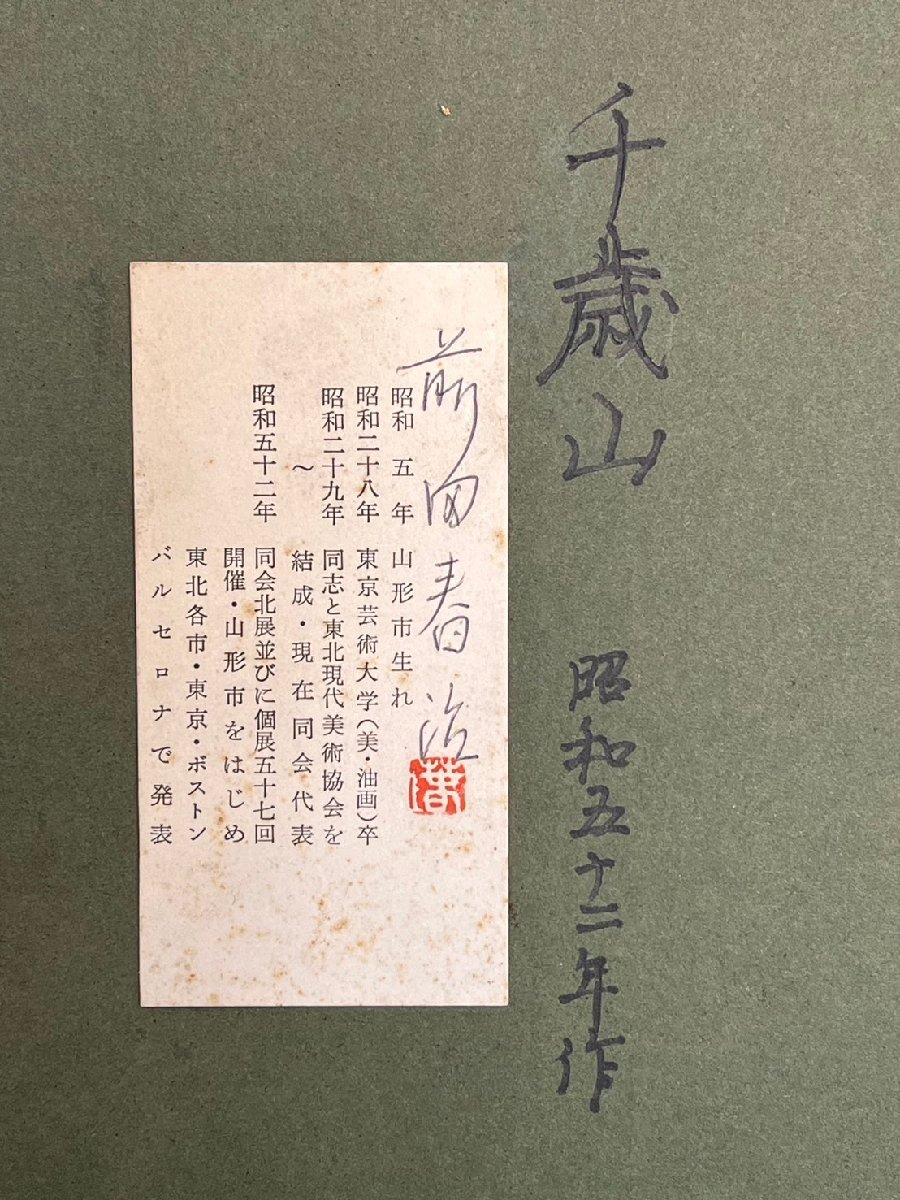 千歳山 昭和五十二年作
前田春治
春
昭和 五 年 山形市生れ
昭和二十八年 東京芸術大学(美・油画)卒
昭和二十九年 同志と東北現代美術協会を
〜 結成・現在同会代表
昭和五十二年 同会北展並びに個展五十七回
開催・山形市をはじめ
東北各市・東京・ボストン
バルセロナで発表